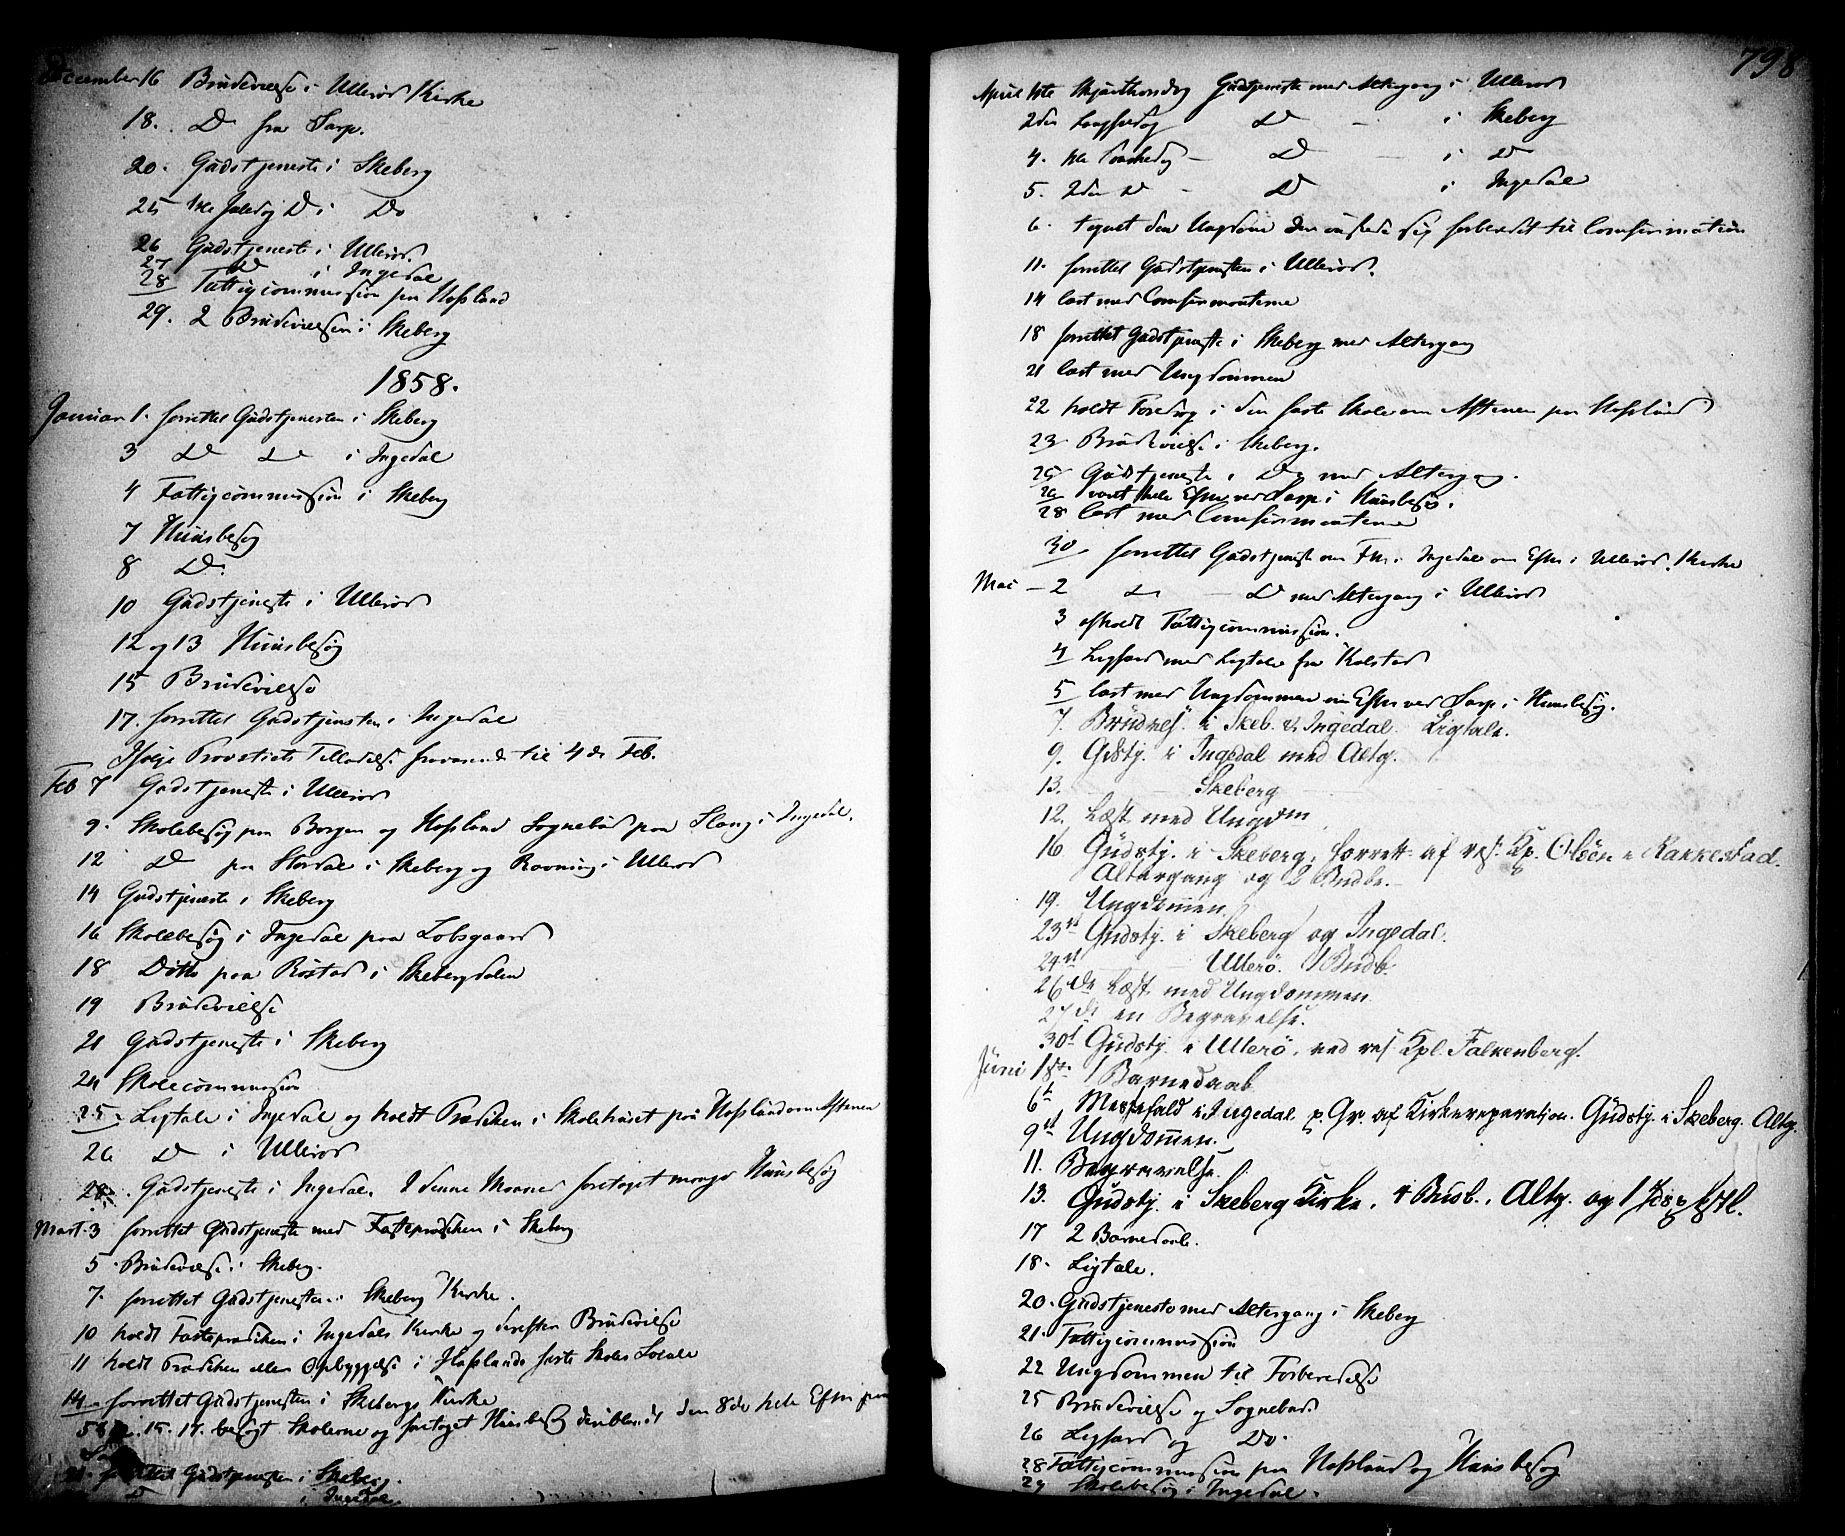 December 16 Brudevielse i Ullerø Kirke
18. Do fra Sarp.
20. Gudstjeneste i Skeberg
25 1ste Juledag Do i Do
26 Gudstjeneste i Ullerø.
27 Do i Ingedal
28 Fattigcommission paa Hafslund
29. 2 Brudevielser i Skeberg
1858.
Januar 1. forrettet Gudstjenesten i Skeberg
3 Do Do i Ingedal
4 Fattigcommission i Skeberg
7 Huusbesøg
8 Do.
10 Gudstjeneste i Ullerø
12 og 13 Huusbesøg
15 Brudevielse
17. forrettet Gudstjenesten i Ingedal
Ifølge Provstiets Tilladelse fraværende til 4de Feb.
Feb 7 Gudstjeneste i Ullerø
9. Skolebesøg paa Borgen og Hafslund Sognebud paa Slang i Ingedal.
12 Do paa Stordal i Skeberg og Rovning i Ullerø
14 Gudstjeneste i Skeberg
16 Skolebesøg i Ingedal paa Lobsgaard
18 Ditto paa Røstad i Skebergdalen
19 Brudevielse
21 Gudstjeneste i Skeberg
24 Skolecommission
25. Ligtale i Ingedal og holdt Prædiken i Skolehuset paa Hafslund om Aftenen
26 Do i Ullerø
28. Gudstjeneste i Ingedal. I denne Maaned foretaget mange Huusbesøg
Mart. 3 forrettet Gudstjeneste med Fasteprædiken i Skeberg
5 Brudevielse i Skeberg.
7. forrettet Gudstjenesten i Skeberg Kirke.
10 holdt Fasteprædiken i Ingedals Kirke og derefter Brudevielse
11 holdt Prædiken eller Opbyggelse i Hafslunds faste Skoles Locale
14 forrettet Gudstjenesten i Skebergs Kirke
15. 17. besøgt Skolerne og foretaget Huusbesøg deriblandt den 8de hele Efterm paa
21. forrettet Gudstjenesten i Skeberg.
Do i Ingedal.
798
April 1ste Skjærthorsdag Gudstjeneste med Altergang i Ullerø
2den Langfredag Do - i Skeberg
4. 1ste Paaskedag - Do - i Do
5. 2den Do - Do i Ingedal
6. tegnet den Ungdom der ønskede sig forberedt til Confirmation
11. forrettet Gudstjenesten i Ullerø.
14 læst med Confirmanterne
18 forrettet Gudstjeneste i Skeberg med Altergang
21 læst med Ungdommen
22 holdt Foredrag i den faste Skole om Aftenen paa Hafslund
23 Brudevielse i Skeberg.
25 Gudstjeneste i Do med Altergang.
26 været hele Efterm ved Sarp i Huusbesøg.
28 læst med Confirmanterne
30 forrettet Gudstjeneste om Fm. i Ingedal om Efterm i Ullerø Kirke
Mai - 2 Do - Do med Altergang i Ullerø
3 afholdt Fattigcommission.
4 Ligfærd med Ligtale fra Kolstad
5 læst med Ungdommen om Efterm ved Sarp i Huusbesøg.
7. Brudvls. i Skeb. & Ingedal. Ligtale.
9. Gdstj. i Ingedal med Altg.
13. Skeberg
12. Læst med Ungdm
16 Gudstj. i Skeberg, forrett. af res. Kp. Olsen i Rakkestad.
Altergang og 2 Budbr.-
19. Ungdommen.
23de Gudstj. i Skeberg og Ingedal.
24de Ullerø. 1 Brudb
26de Læst med Ungdommen
27de en Begravelse.
30te Gudstj. i Ullerø, ved res. Kpl. Falkenberg.
Juni 1ste 1 Barnedaab
6te Messefald i Ingedal p. Gr. af Kirkereparation. Gudstj. i Skeberg. Altg.
9de Ungdommen.
11. Begravelse.
13. Gudstj. i Skeberg Kirke, 4 Brudb., Altg. og 1
17 2 Barnedaab.
18. Ligtale.
20. Gudstjeneste med Altergang i Skeberg
21. Fattigcommission
22 Ungdommen til Forberedelse
25 Brudevielse og Sognebud
26 Ligfærd og Do.
28 Fattigcommission paa Hafslund og Huusbesøg
29 Skolebesøg i Ingedal.